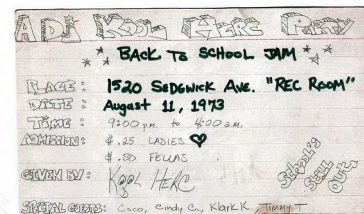 A DJ KOOL HERC PARTY
BACK TO SCHOOL JAM
PLACE: 1520 SEDGWICK AVE. "REC ROOM"
DATE: August 11, 1973
TIME: 9:00 pm to 4:00 a.m.
ADMISSION: $.25 LADIES
$.50 FELLAS
GIVEN BY: KOOL HERC
School's Still Out
SPECIAL GUESTS: Coco, Cindy C., Klark K., TIMMY T